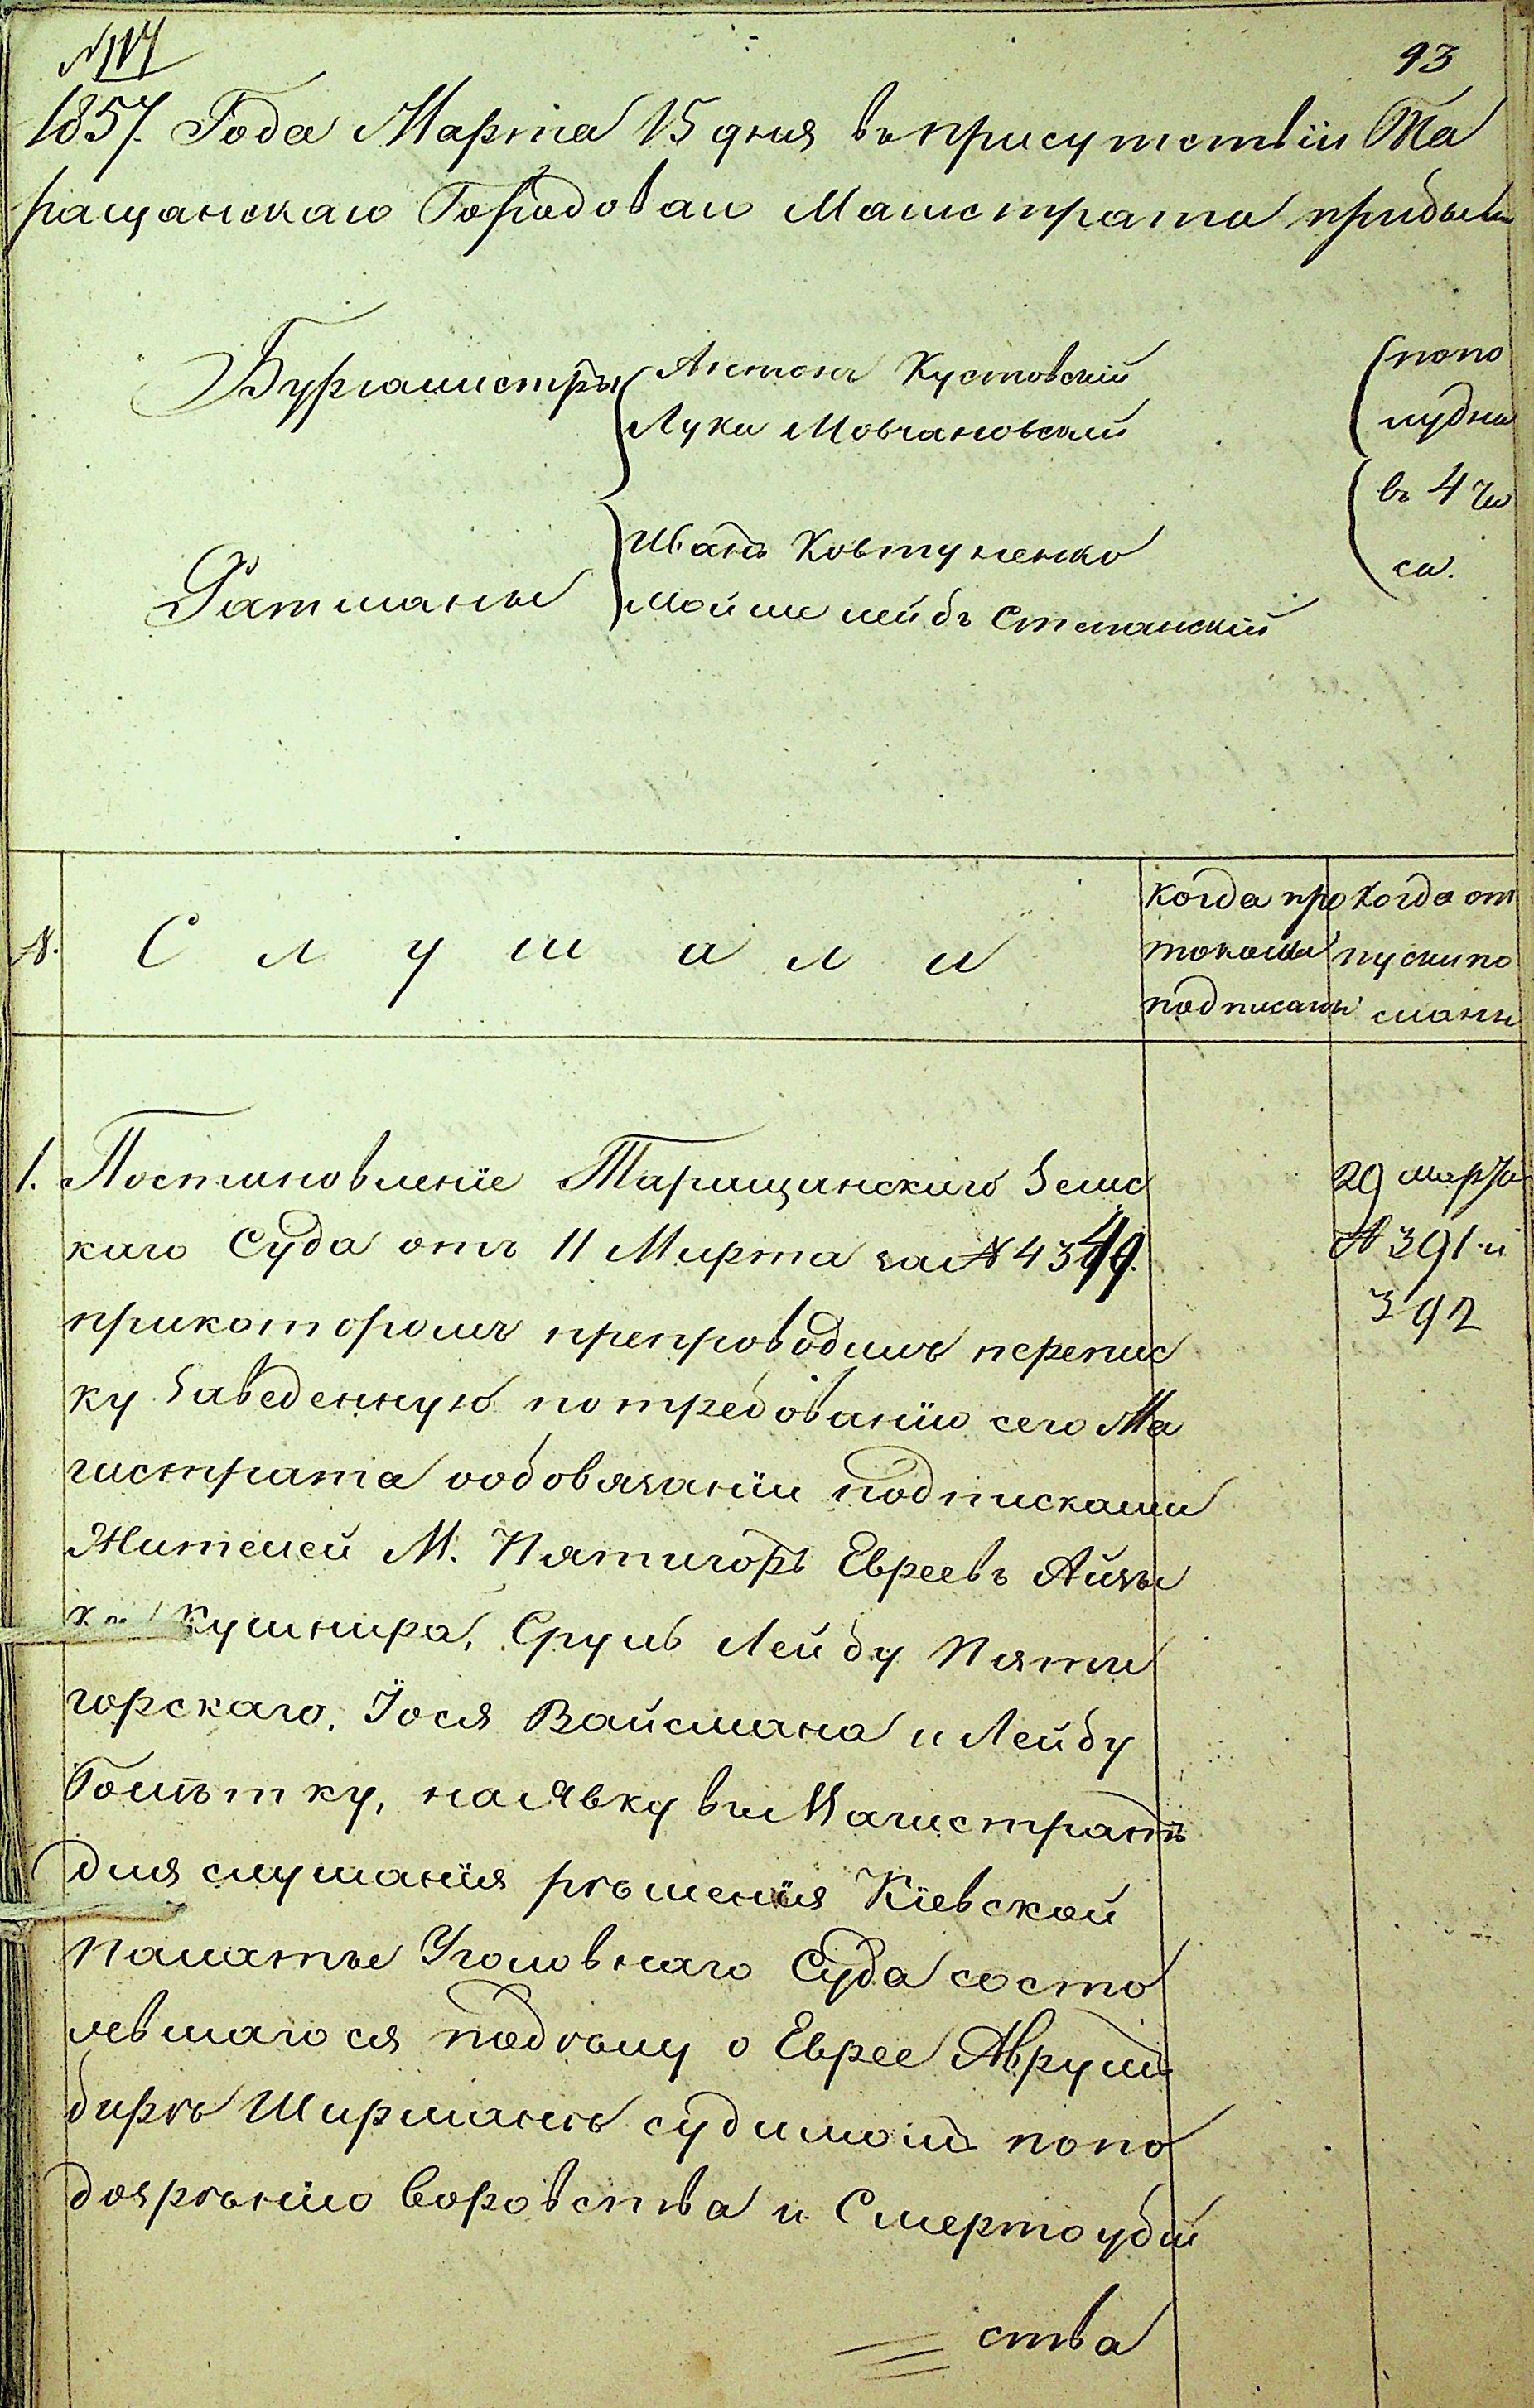 93
1857. Года Марта 15 дня въ присутствiи Та
ращанскаго Городоваго Магистрата прибыли
Бургамистры
Антонъ Кустовскiй
Лука Мовчановскiй
Ратманы
Иванъ Ковтуненко
Мойше лейбъ Степанскiй
попо
лудни
въ 4 ча
са.
N.
Слушали
когда про
токолы
подписаны
Когда от
пуски по
сланы
1. Постановленiе Таращанскаго Земс
каго Суда отъ 11 Марта за N 4349.
прикоторомъ препроводилъ перепис
ку заведенную потребованiю сего Ма
гистрата ообовязанiи подписками
Жителей М. Пятигоръ Евреевъ Айзы
ка Кушнира, Сруль Лейбу Пяти
горскаго, Iося Вайсмана и Лейбу
наявку въ сей Магистратъ
для слушанiя рѣшенiя Кiевской
Палаты Уголовнаго Суда состо
явшагося поделу о Еврее Аврумъ
беркѣ Ширманѣ судимомъ попо
дозрѣнiю воровства и Смертоубiй
ства
29 марта
N 391 и
392